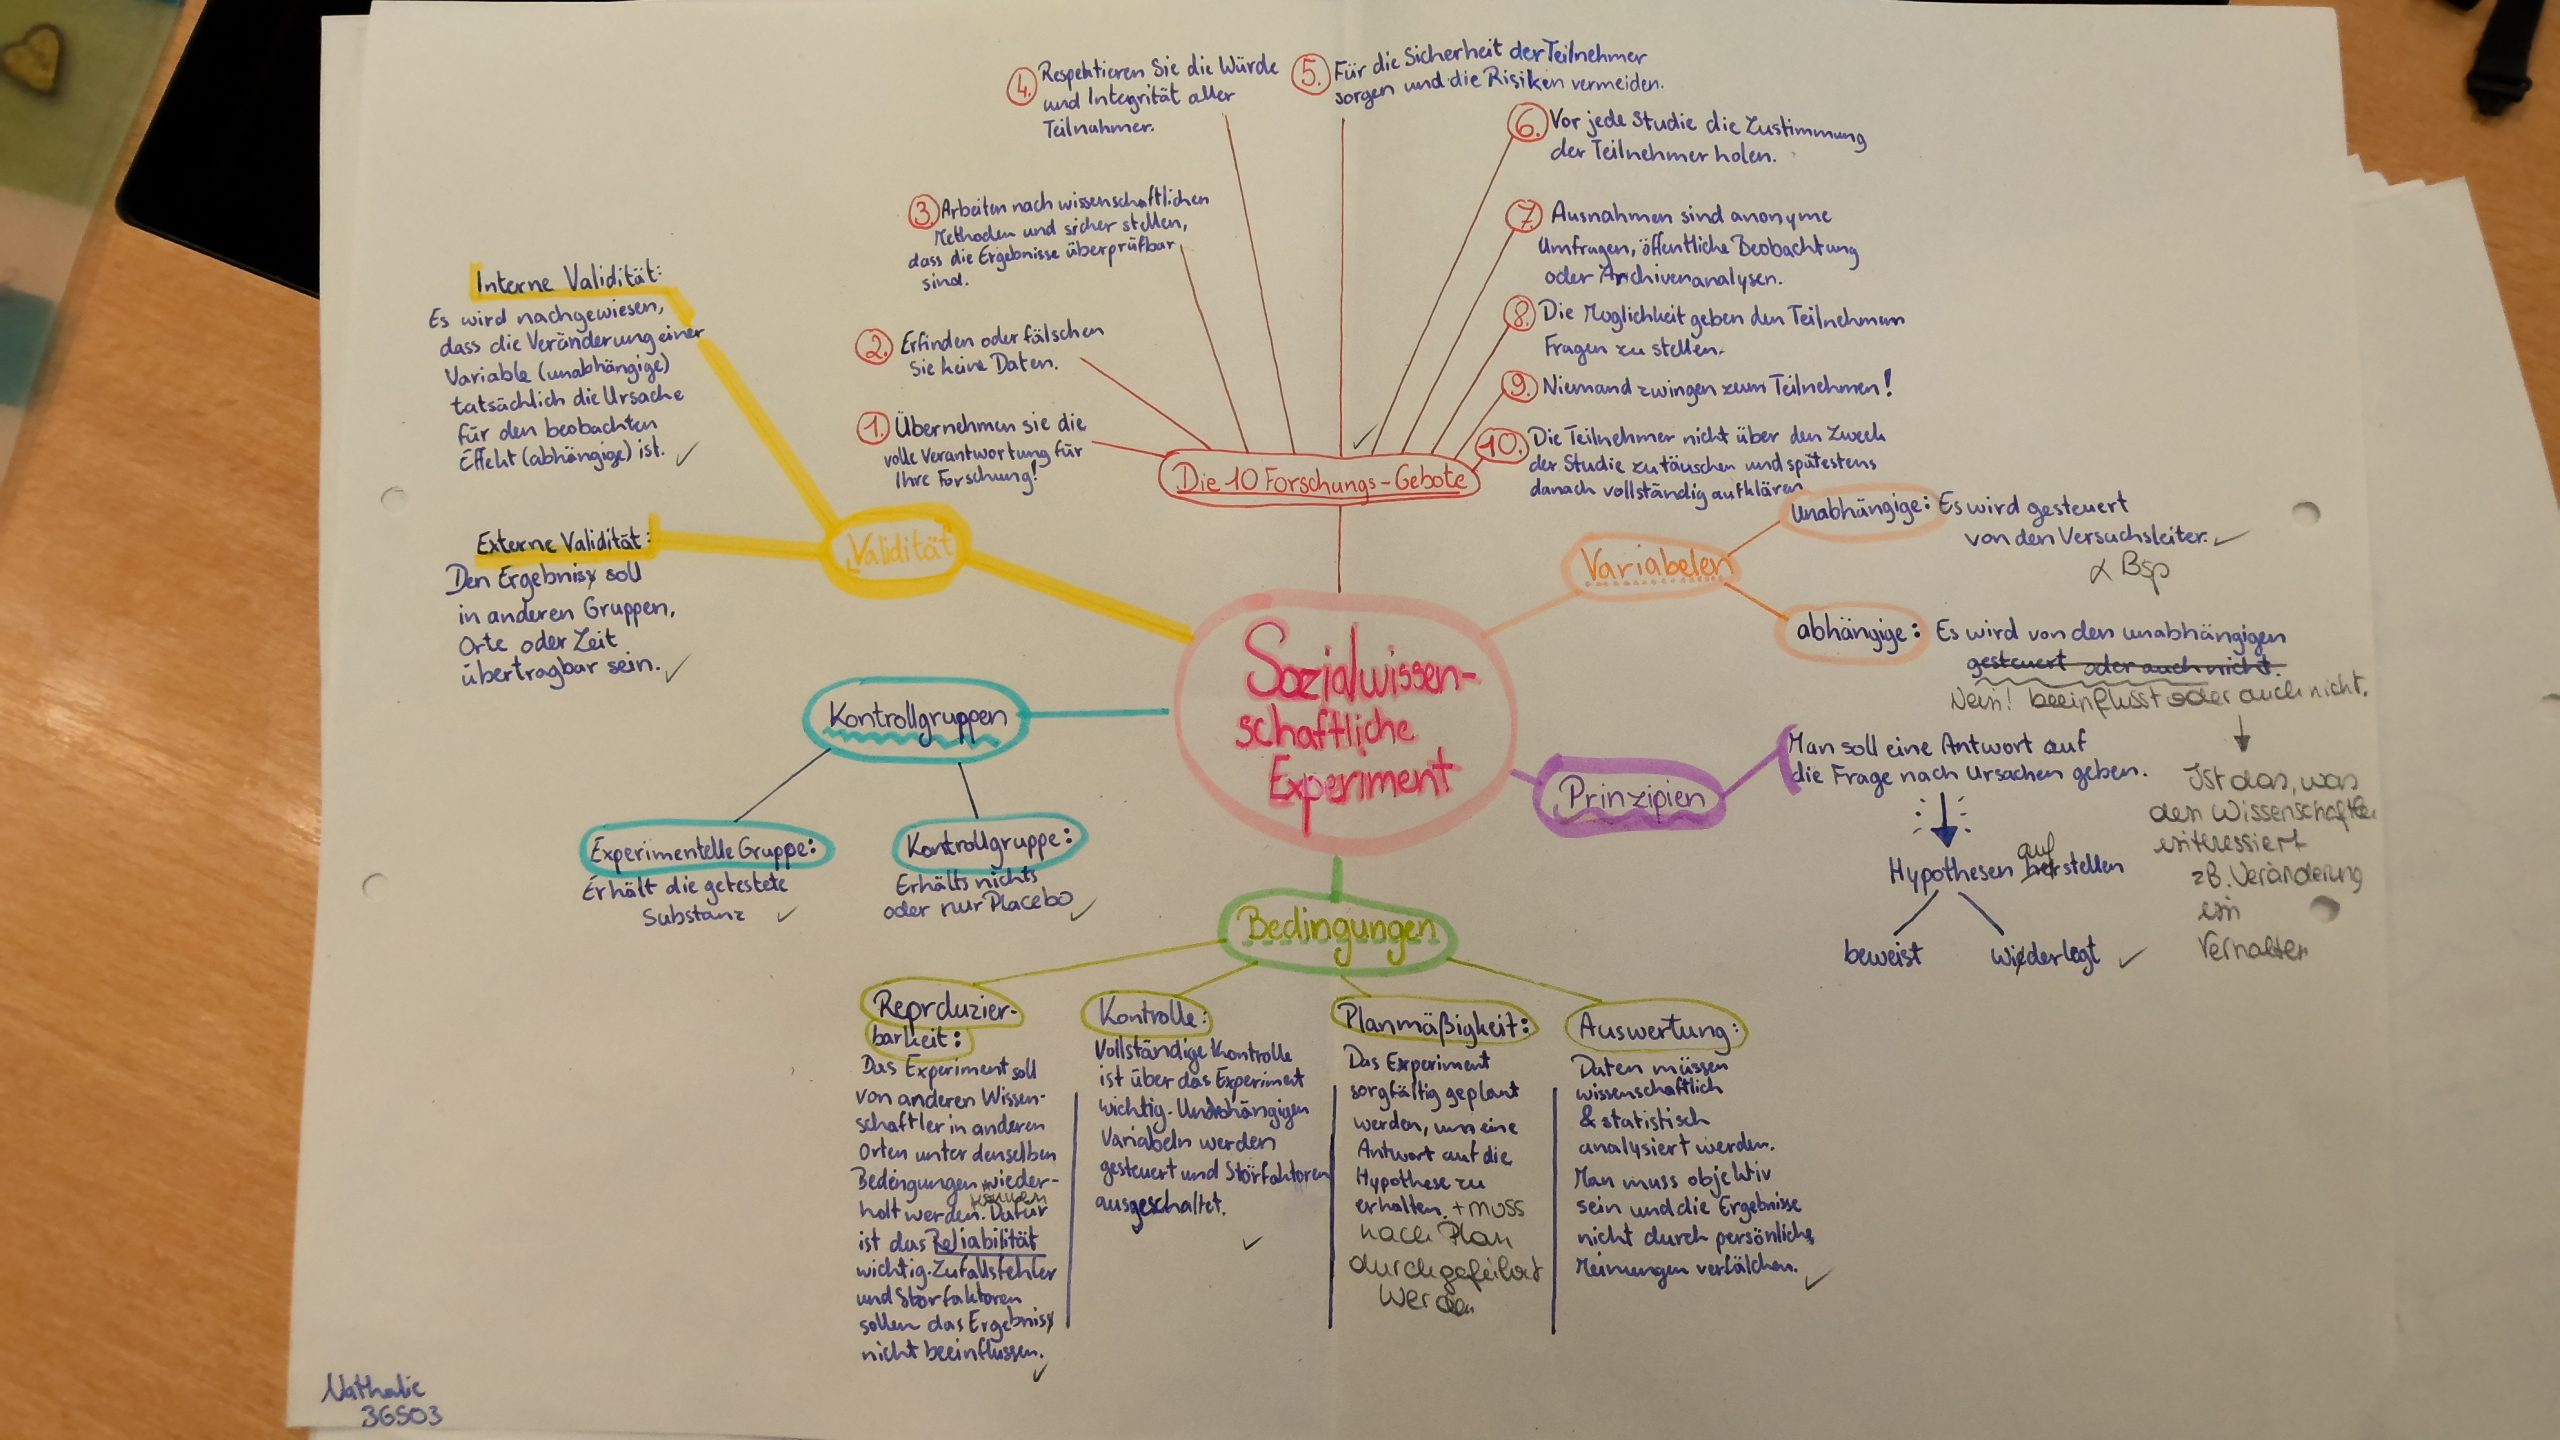 4. Respektieren Sie die Würde
und Integrität aller
Teilnahmer.
5. Für die Sicherheit der Teilnehmer
sorgen und die Risiken vermeiden.
6. Vor jede Studie die Zustimmung
der Teilnehmer holen.
3. Arbeiten nach wissenschaftlichen
Methoden und sicher stellen,
dass die Ergebnisse überprüfbar
sind.
7. Ausnahmen sind anonyme
Umfragen, öffentliche Beobachtung
oder Archivenanalysen.
2. Erfinden oder fälschen
Sie keine Daten.
8. Die Moglichkeit geben den Teilnehmen
Fragen zu stellen.
1. Übernehmen sie die
volle Verantwortung für
Ihre Forschung!
9. Niemand zwingen zum Teilnehmen!
10. Die Teilnehmer nicht über den Zweck
der Studie zu täuschen und spätestens
danach vollständig aufklären
Die 10 Forschungs-Gebote
Interne Validität:
Es wird nachgewiesen,
dass die Veränderung einer
Variable (unabhängige)
tatsächlich die Ursache
für den beobachten
Effekt (abhängige) ist.
Externe Validität:
Den Ergebniss soll
in anderen Gruppen,
Orte oder Zeit
übertragbar sein.
Validität
Variabelen
Unabhängige: Es wird gesteuert
von den Versuchsleiter.
Bsp
abhängige: Es wird von den unabhängigen
gesteuert oder auch nicht.
Nein! beeinflusst oder auch nicht.
Ist das, was
den Wissenschaftler
interessiert
zB. Veränderung
im
Verhalten
Sozialwissen-
schaftliche
Experiment
Kontrollgruppen
Experimentelle Gruppe:
Erhält die getestete
Substanz
Kontrollgruppe:
Erhälts nichts
oder nur Placebo
Prinzipien
Man soll eine Antwort auf
die Frage nach Ursachen geben.
auf
Hypothesen herstellen
beweist
wiederlegt
Bedingungen
Reprduzier-
barkeit:
Das Experiment soll
von anderen Wissen-
schaftler in anderen
Orten unter denselben
Bedengungen wieder-
können
holt werden. Dafür
ist das Reliabilität
wichtig. Zufallsfehler
und Störfaktoren
sollen das Ergebniss
nicht beeinflussen.
Kontrolle:
Vollständige Kontrolle
ist über das Experiment
wichtig. Unabhängigen
Variabeln werden
gesteuert und Störfaktoren
ausgeschaltet.
Planmäßigkeit:
Das Experiment
sorgfältig geplant
werden, um eine
Antwort auf die
Hypothese zu
erhalten. + muss
nach Plan
durchgeführt
werden
Auswertung:
Daten müssen
wissenschaftlich
& statistisch
analysiert werden.
Man muss objektiv
sein und die Ergebnisse
nicht durch persönliche
Meinungen verfälchen.
Nathalie
3GSO3